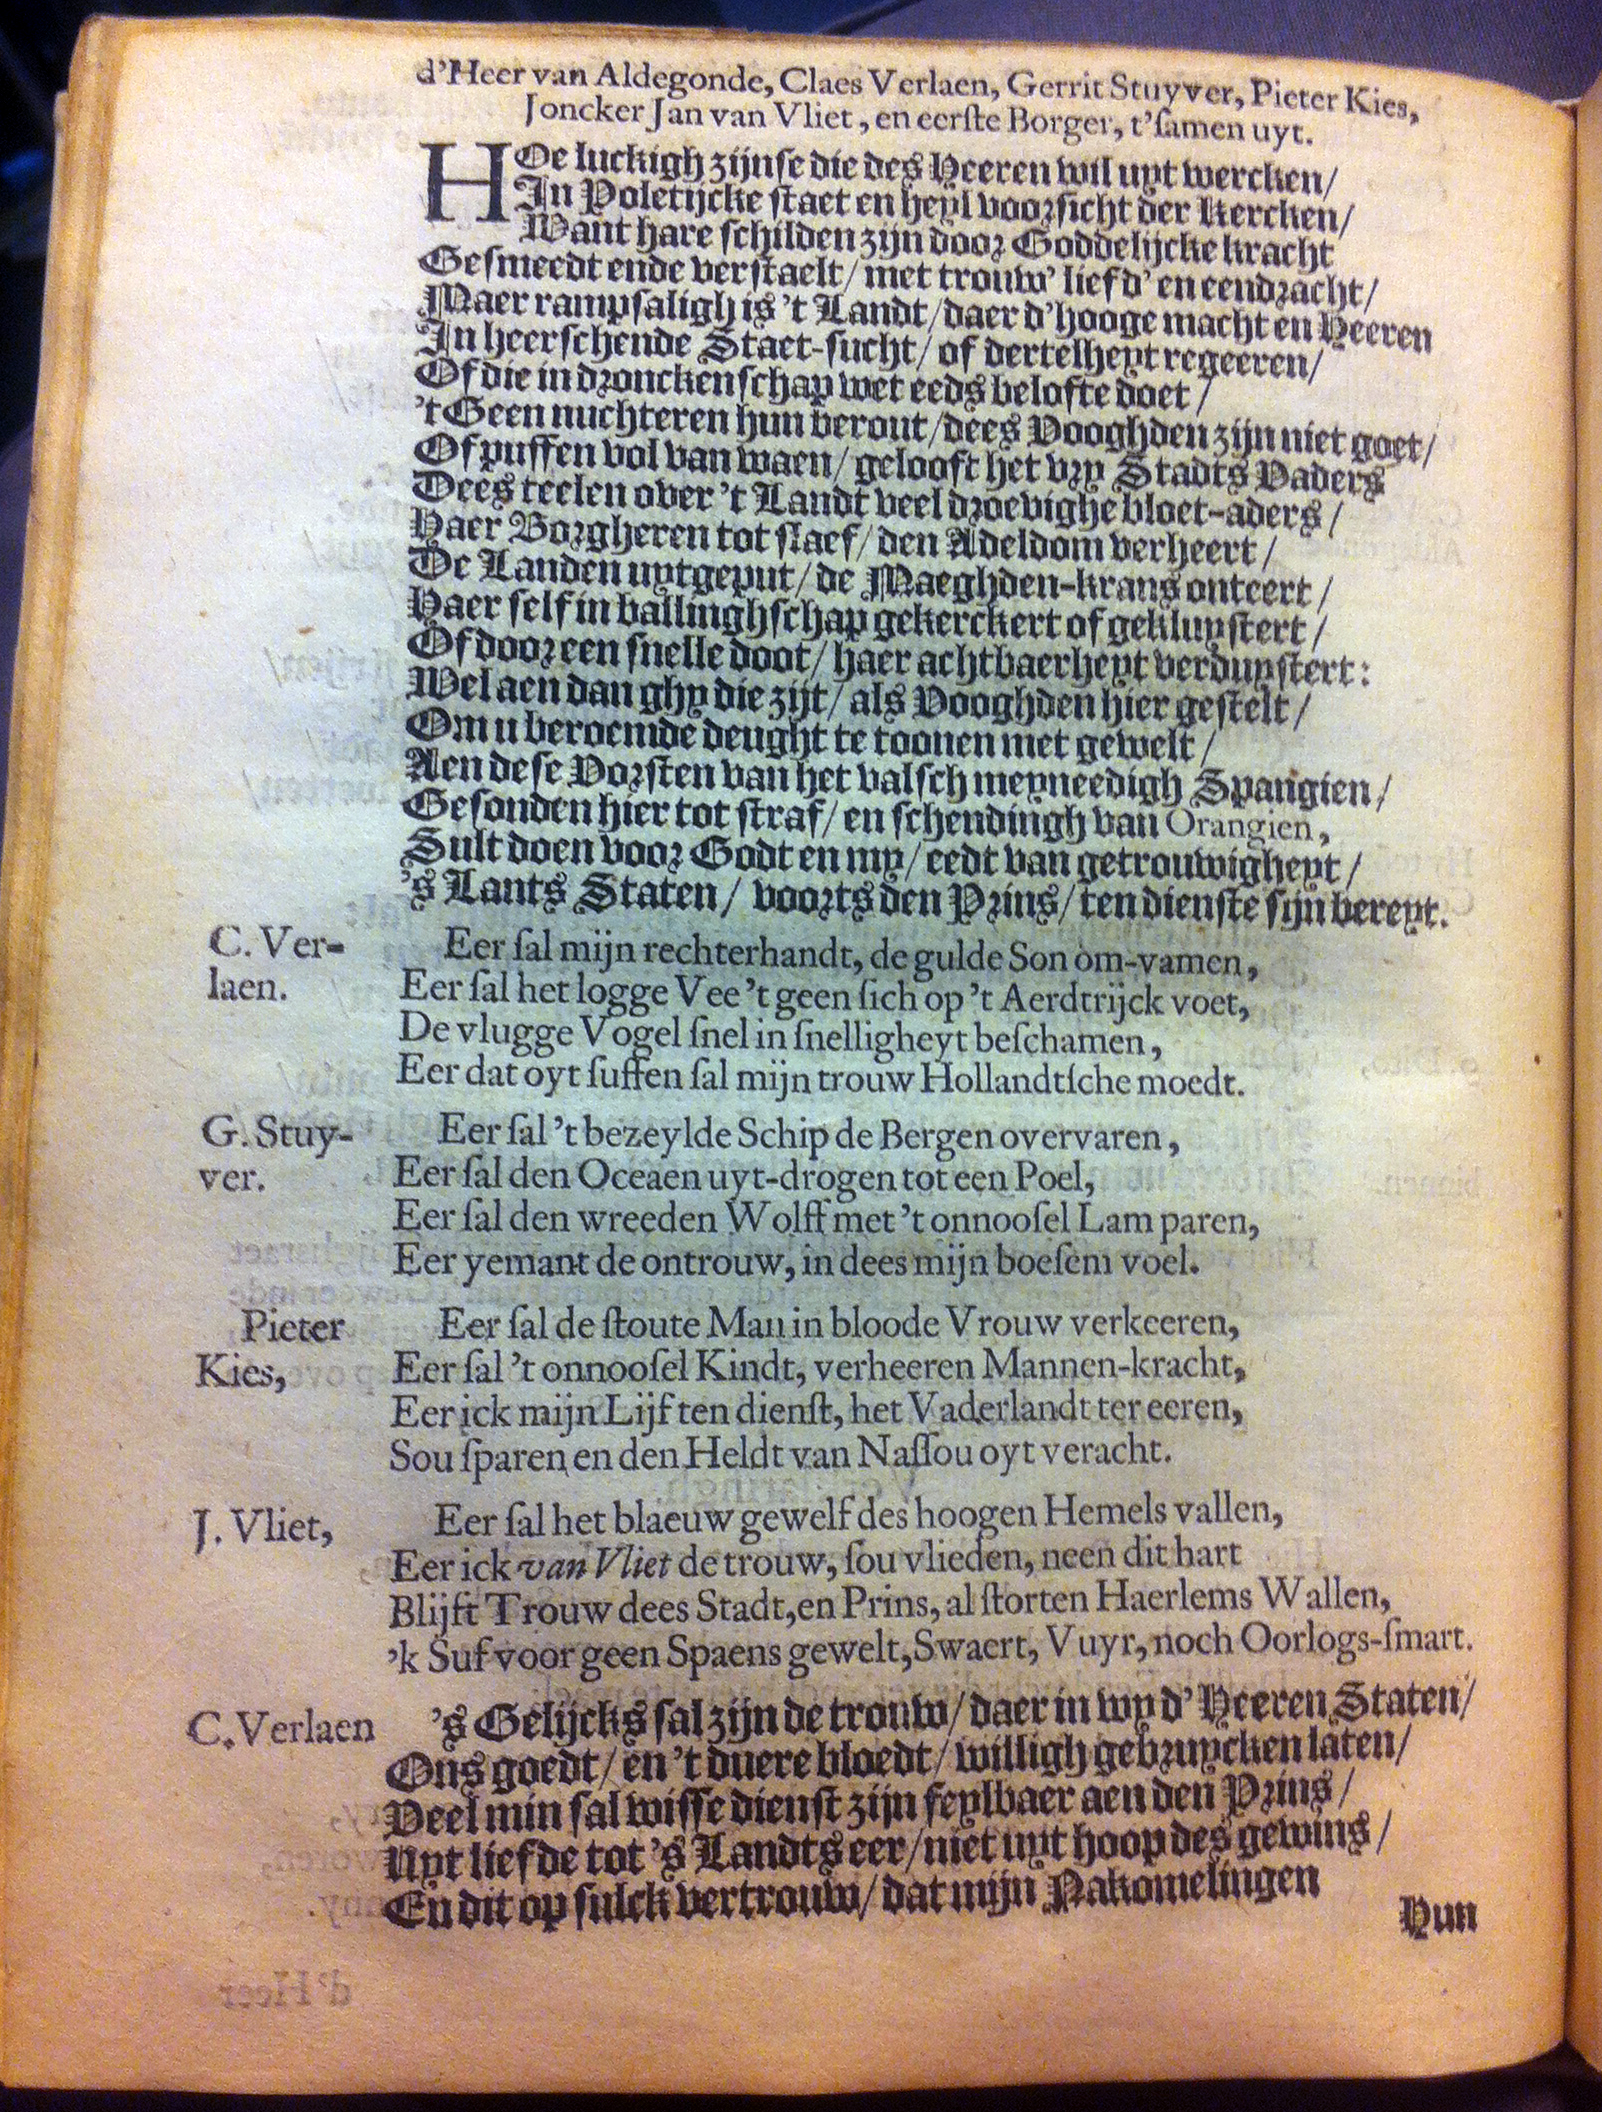 d'Heer van Aldegonde, Claes Verlaen, Gerrit Stuyver, Pieter Kies,
Joncker Jan van Vliet, en eerſte Borger, t'ſamen uyt.
HOe luckigh zijnſe die des Heeren wil uyt wercken/
In Poletijcke ſtaet en heyl voorſicht der Kercken/
Want hare ſchilden zijn door Goddelijcke kracht
Geſmeedt ende verſtaelt/ met trouw' liefd' en eendracht/
Maer rampſaligh is 't Landt/ daer d'hooge macht en Heeren
In heerſchende Staet-ſucht/ of dertelheyt regeeren/
Of die in dronckenſchap wet eeds belofte doet/
't Geen nuchteren hun berout/ dees Vooghden zijn niet goet/
Of puffen vol van waen/ gelooft het vry Stadts Vaders
Dees teelen over 't Landt veel droevighe bloet-aders/
Haer Borgheren tot ſlaef/ den Adeldom verheert/
De Landen uytgeput/ de Maeghden-krans onteert/
Haer ſelf in ballinghſchap gekerckert of gekluyſtert/
Of door een ſnelle doot/ haer achtbaerheyt verduyſtert:
Wel aen dan ghy die zijt/ als Vooghden hier geſtelt/
Om u beroemde deught te toonen met gewelt/
Aen deſe Vorſten van het valſch meyneedigh Spangien/
Geſonden hier tot ſtraf/ en ſchendingh van Orangien,
Sult doen voor Godt en my/ eedt van getrouwigheyt/
's Lants Staten/ voorts den Prins/ ten dienſte ſijn bereyt.
C. Ver- Eer ſal mijn rechterhandt, de gulde Son om-vamen,
laen. Eer ſal het logge Vee 't geen ſich op 't Aerdtrijck voet,
De vlugge Vogel ſnel in ſnelligheyt beſchamen,
Eer dat oyt ſuffen ſal mijn trouw Hollandtſche moedt.
G. Stuy- Eer ſal 't bezeylde Schip de Bergen overvaren,
ver. Eer ſal den Oceaen uyt-drogen tot een Poel,
Eer ſal den wreeden Wolff met 't onnooſel Lam paren,
Eer yemant de ontrouw, in dees mijn boeſem voel.
Pieter Eer ſal de ſtoute Man in bloode Vrouw verkeeren,
Kies, Eer ſal 't onnooſel Kindt, verheeren Mannen-kracht,
Eer ick mijn Lijf ten dienſt, het Vaderlandt ter eeren,
Sou ſparen en den Heldt van Naſſou oyt veracht.
J. Vliet, Eer ſal het blaeuw gewelf des hoogen Hemels vallen,
Eer ick van Vliet de trouw, ſou vlieden, neen dit hart
Blijft Trouw dees Stadt, en Prins, al ſtorten Haerlems Wallen,
'k Suf voor geen Spaens gewelt, Swaert, Vuyr, noch Oorlogs-ſmart.
C. Verlaen 's Gelijcks ſal zijn de trouw/ daer in wy d'Heeren Staten/
Ons goedt/ en 't duere bloedt/ willigh gebruycken laten/
Veel min ſal wiſſe dienſt zijn feylbaer aen den Prins/
Uyt liefde tot 's Landts eer/ niet uyt hoop des gewins/
En dit op ſulck vertrouw/ dat mijn Nakomelingen
Hun